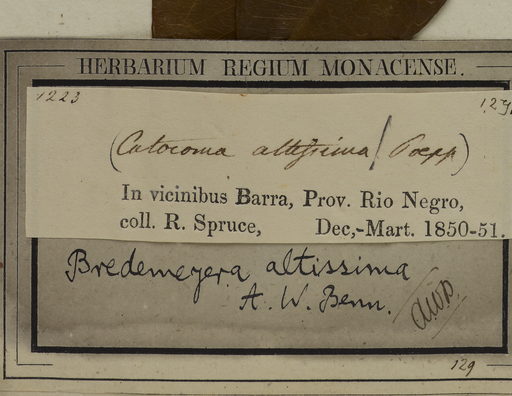 HERBARIUM REGIUM MONACENSE.
1223
(Catocoma altissima / Poepp)
In vicinibus Barra, Prov. Rio Negro,
coll. R. Spruce, Dec,-Mart. 1850-51.
Bredemeyera altissima
A. W. Benn.
129